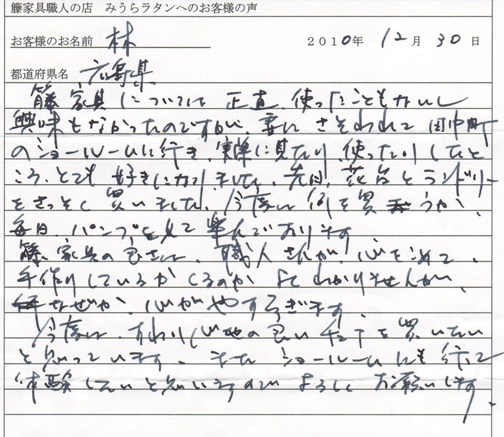 籐家具職人の店　みうらラタンへのお客様の声
お客様のお名前　林　2010年 12月 30日
都道府県名　広島県
籐家具については 正直、使ったこともないし
興味もなかったのですが、妻に さそわれて 田中町
のショールームに行き、実際に見たり、使ったりしたと
ころ、とても 好きになりました。先日、花台とランドリー
をさっそく 買いました。今度は 何を買おうか、
毎日、パンフを見て 楽んでおります。
籐家具の良さは、職人さんが、心をこめて、
手作りしているからなのか よく わかりませんが、
なぜか、心が やすらぎます。
今度は、すわり心地の良い チェアを 買いたい
と思っています。また ショールームにも 行って
体験したいと思いますので よろしく お願いします。